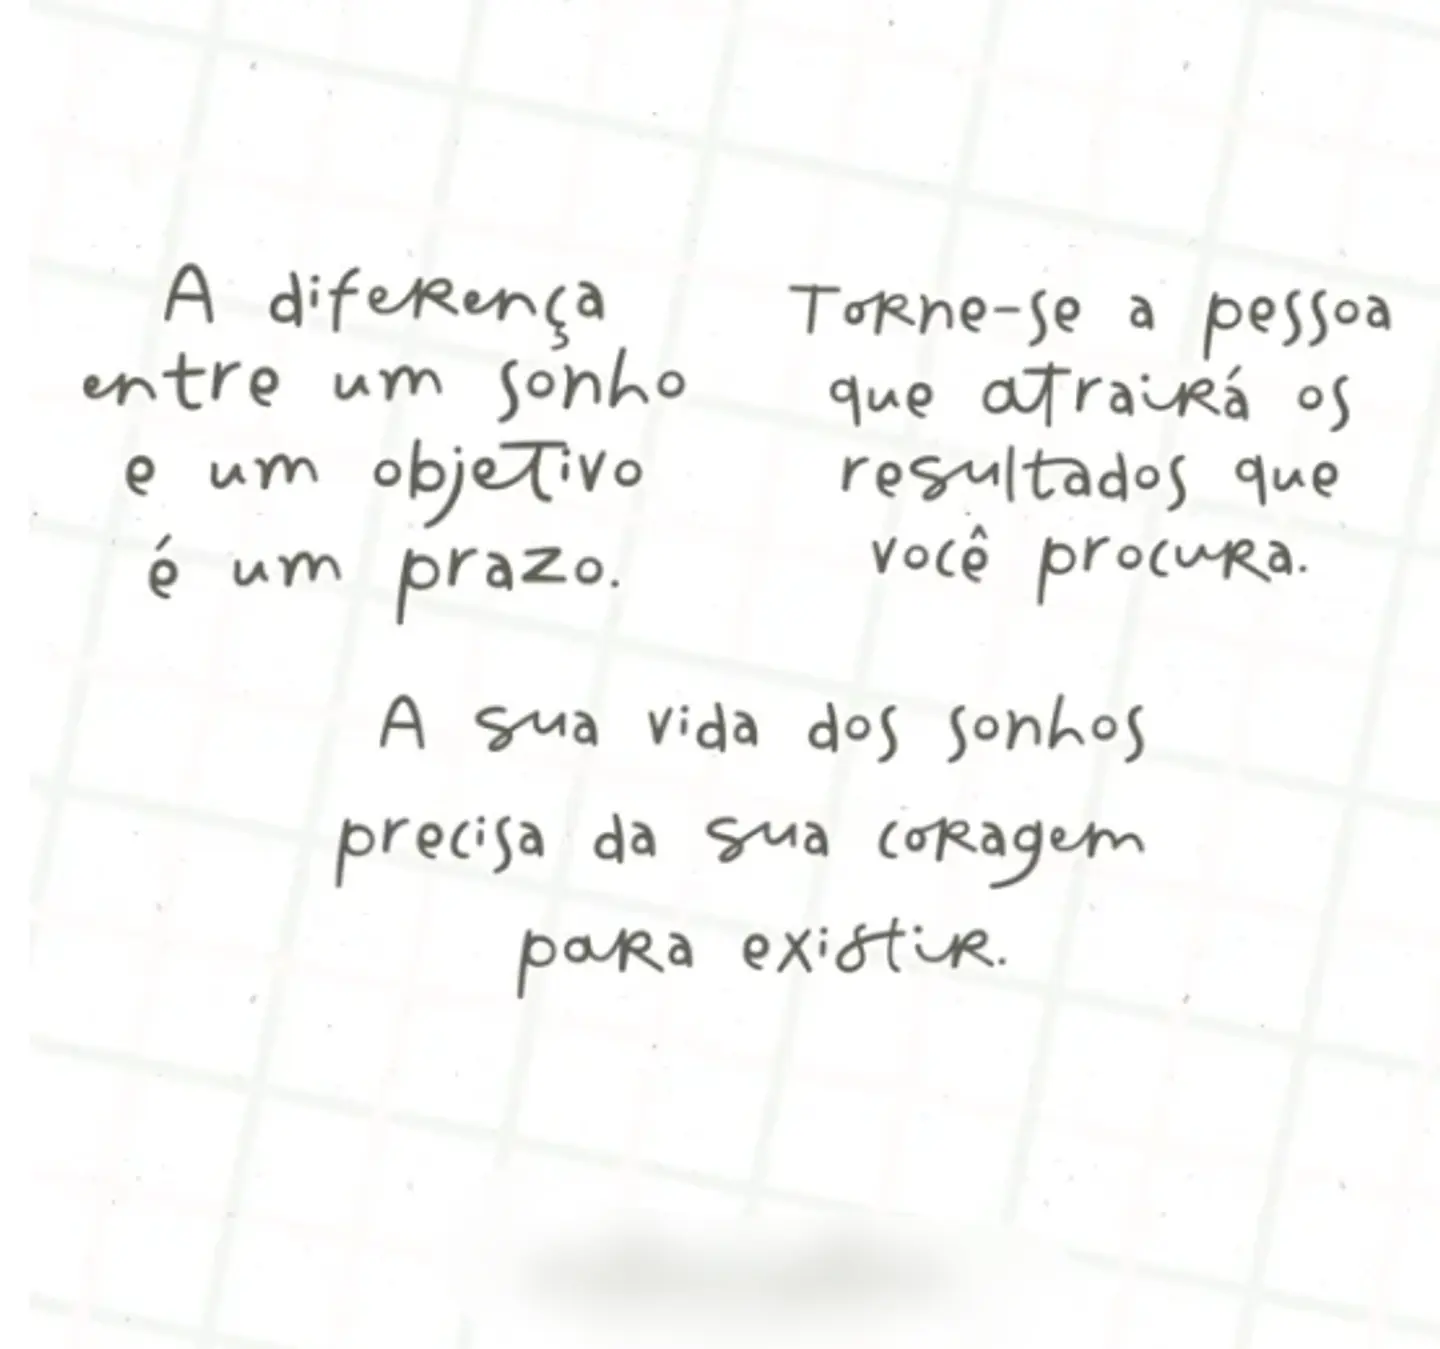 A diferença
entre um sonho
e um objetivo
é um prazo.
Torne-se a pessoa
que atrairá os
resultados que
você procura.
A sua vida dos sonhos
precisa da sua coragem
para existir.